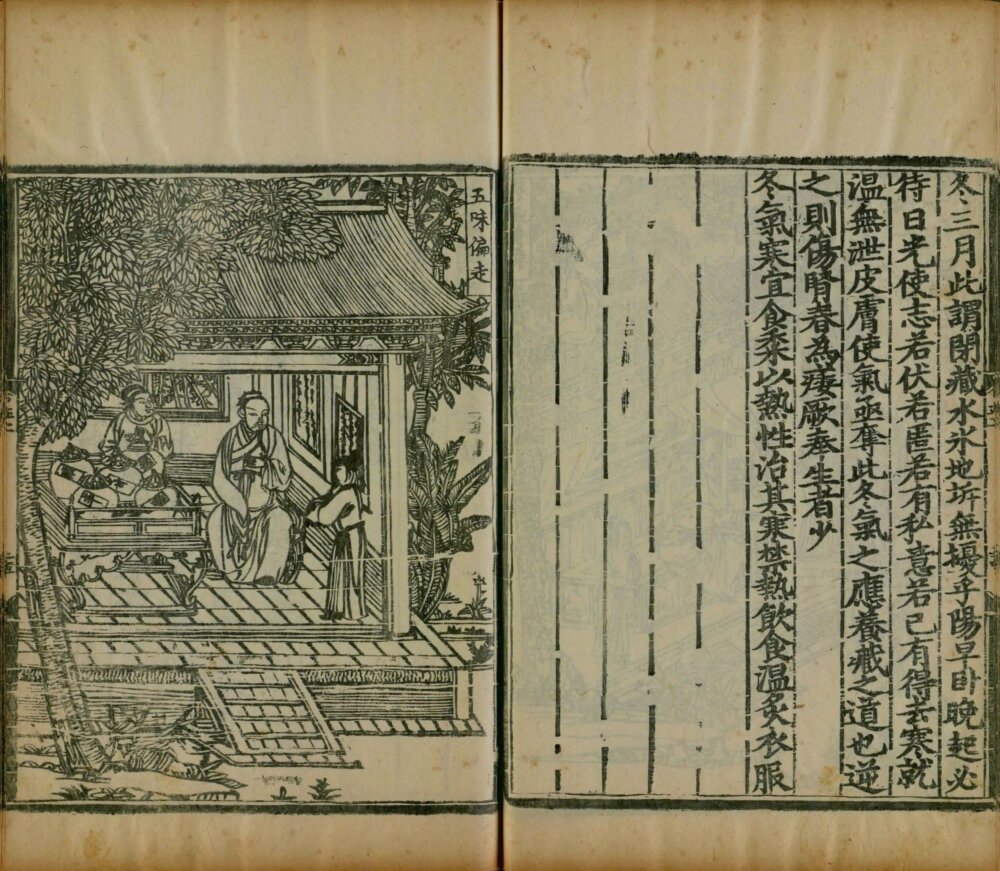 冬三月此謂閉藏水氷地坼無擾乎陽早卧晚起必
待日光使志若伏若匿若有私意若已有得去寒就
溫無泄皮膚使氣亟奪此冬氣之應養藏之道也逆
之則傷腎春為痿厥奉生者少
冬氣寒宜食黍以熱性治其寒禁熱飲食溫炙衣服
五味偏走